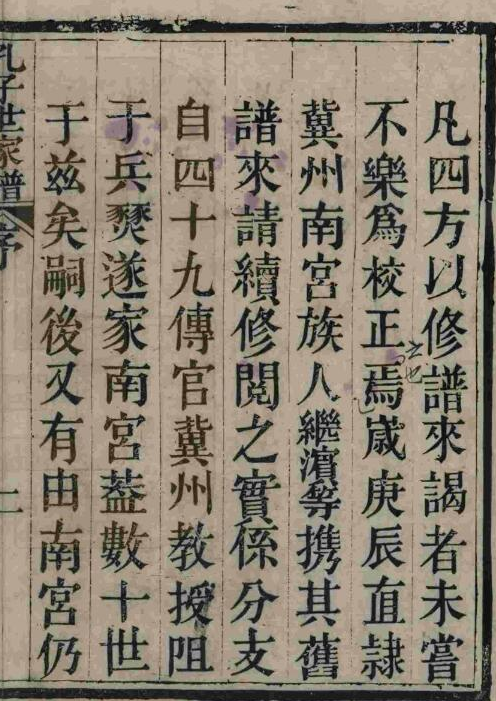 凡四方以修譜來謁者未嘗
不樂爲校正焉歲庚辰直隸
冀州南宮族人繼濱等携其舊
譜來請續修閱之實係分支
自四十九傳官冀州教授阻
于兵燹遂家南宮葢數十世
于兹矣嗣後又有由南宮仍
孔子世家譜 序